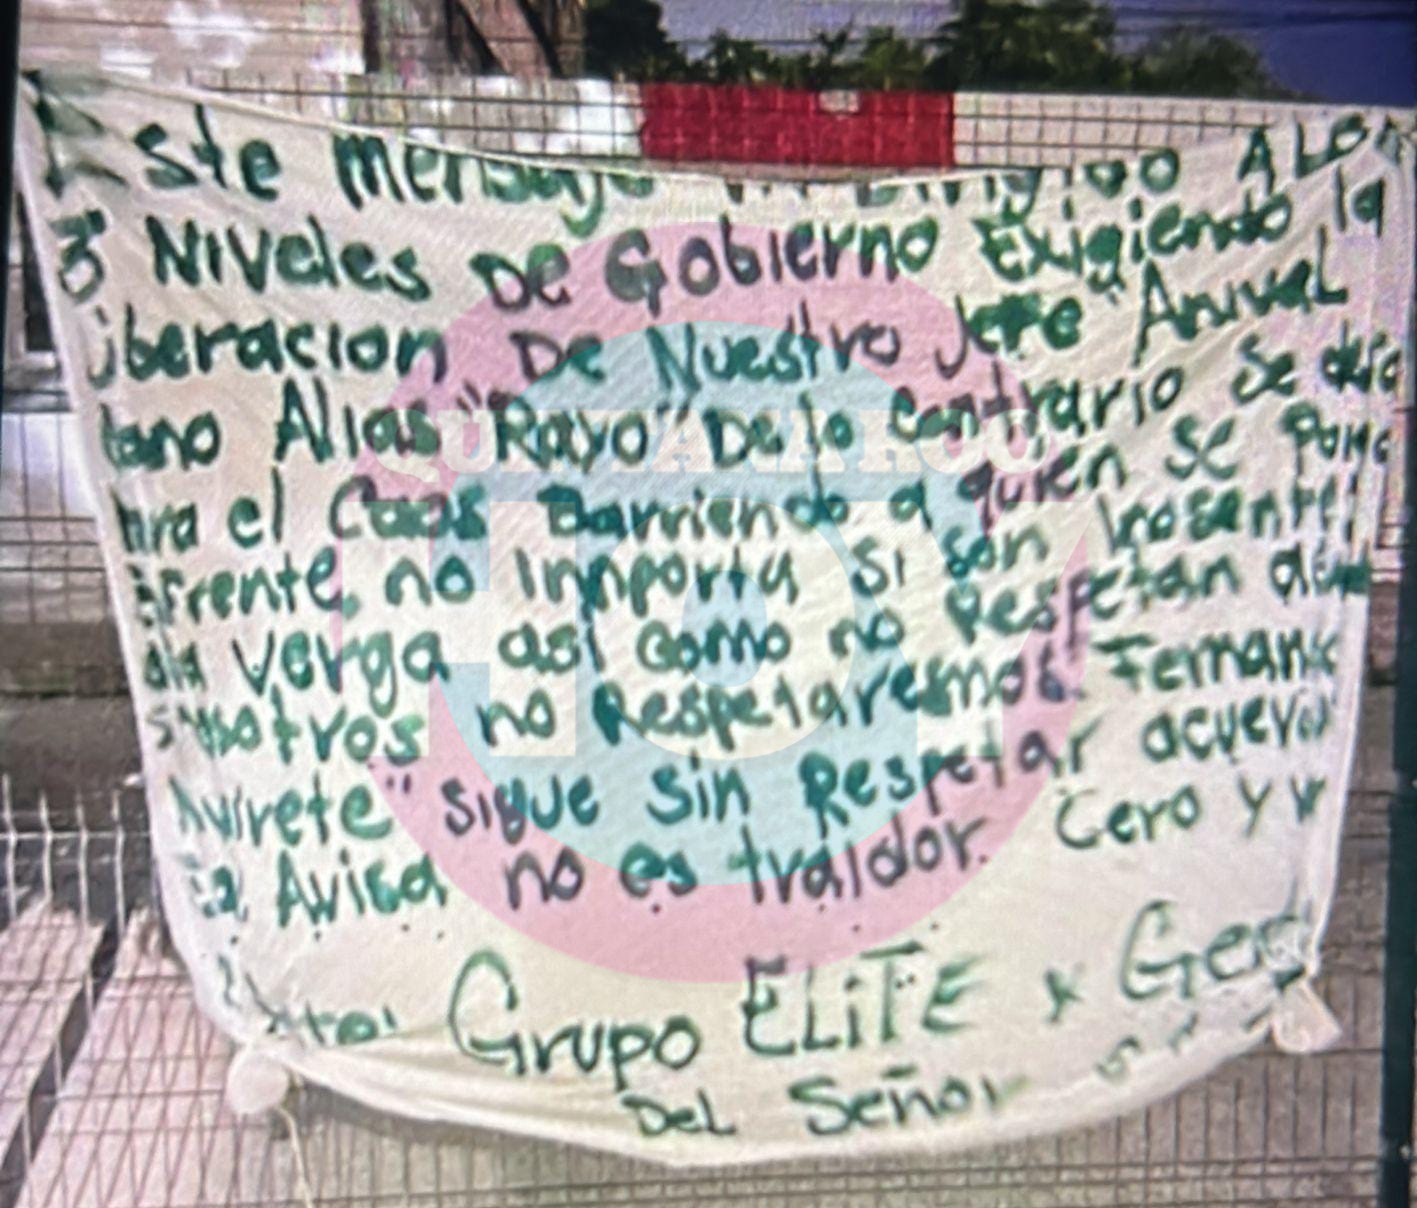 Este mensaje DiRigiDO A LOS
3 NIVeles De Gobierno Exigiendo la
liberacion De Nuestro Jefe "Anival
Alias "Rayo" De lo Contrario Se
el Caos Barriendo a quien Se Pone
Enfrente, no Innporta Si Son Inosentes
Verga asi como no Respetan
nosotros no Respetaremos. Fernando
Avirete" sigue sin Respetar
Avisa no es traidor. Cero y
Grupo ELiTE x
Del Señor
QUINTANA ROO
HOY